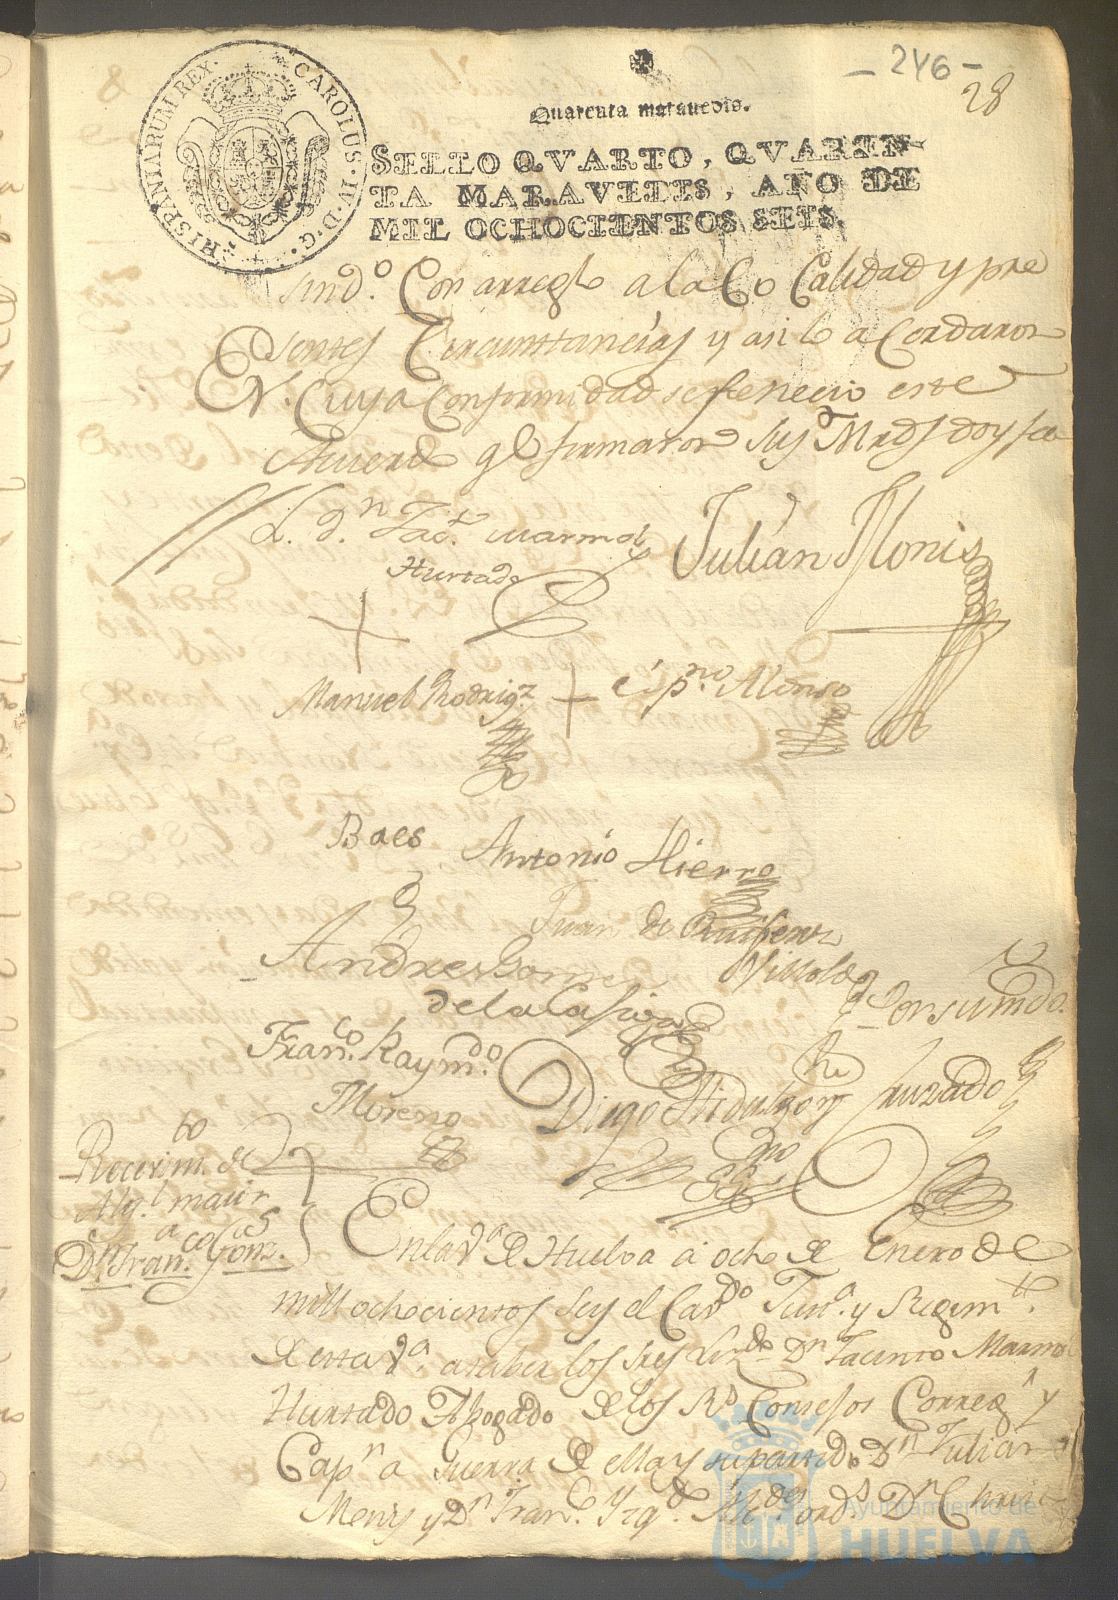 - 246 -
28
HISPANIARUM REX. CAROLUS. IV. D. G.
Quarenta maravedis.
SELLO QVARTO, QVAREN-
TA MARAVEDIS, AÑO DE
MIL OCHOCIENTOS SEIS.
sind.º Con arreglo a la Calidad y pre
sentes Circunstancias y asi lo aCordaron
En Cuya Conformidad se fenecio este
Acuerdo q lo firmaron sus Mrds doy fee
L. dn Jact. Marmol
Hurtado
Julián Monis
Manuel Rodrigz
Alonso
Baes
Antonio Hierro
Juan de
Andres Gomez
de la
Fran.co Raym.do
Moreno
Diego Hidalgo
Cruzado
Recevim.to de
Alg.l maior
a
Dn Fran.co Gonz.
En la Va de Huelva á ocho de Enero de
mill ochocientos seis el Cavdo Jusa. y Regim.to
de esta Va. a saber los Sres Licdo Dn Jacinto Marmol
Hurtado Abogado de los Rs Consejos Correg.r y
Capn a Guerra de ella y su partido Dn Julian
Monis y Dn Fran.co Ords Dn Christ
Ayuntamiento de
HUELVA